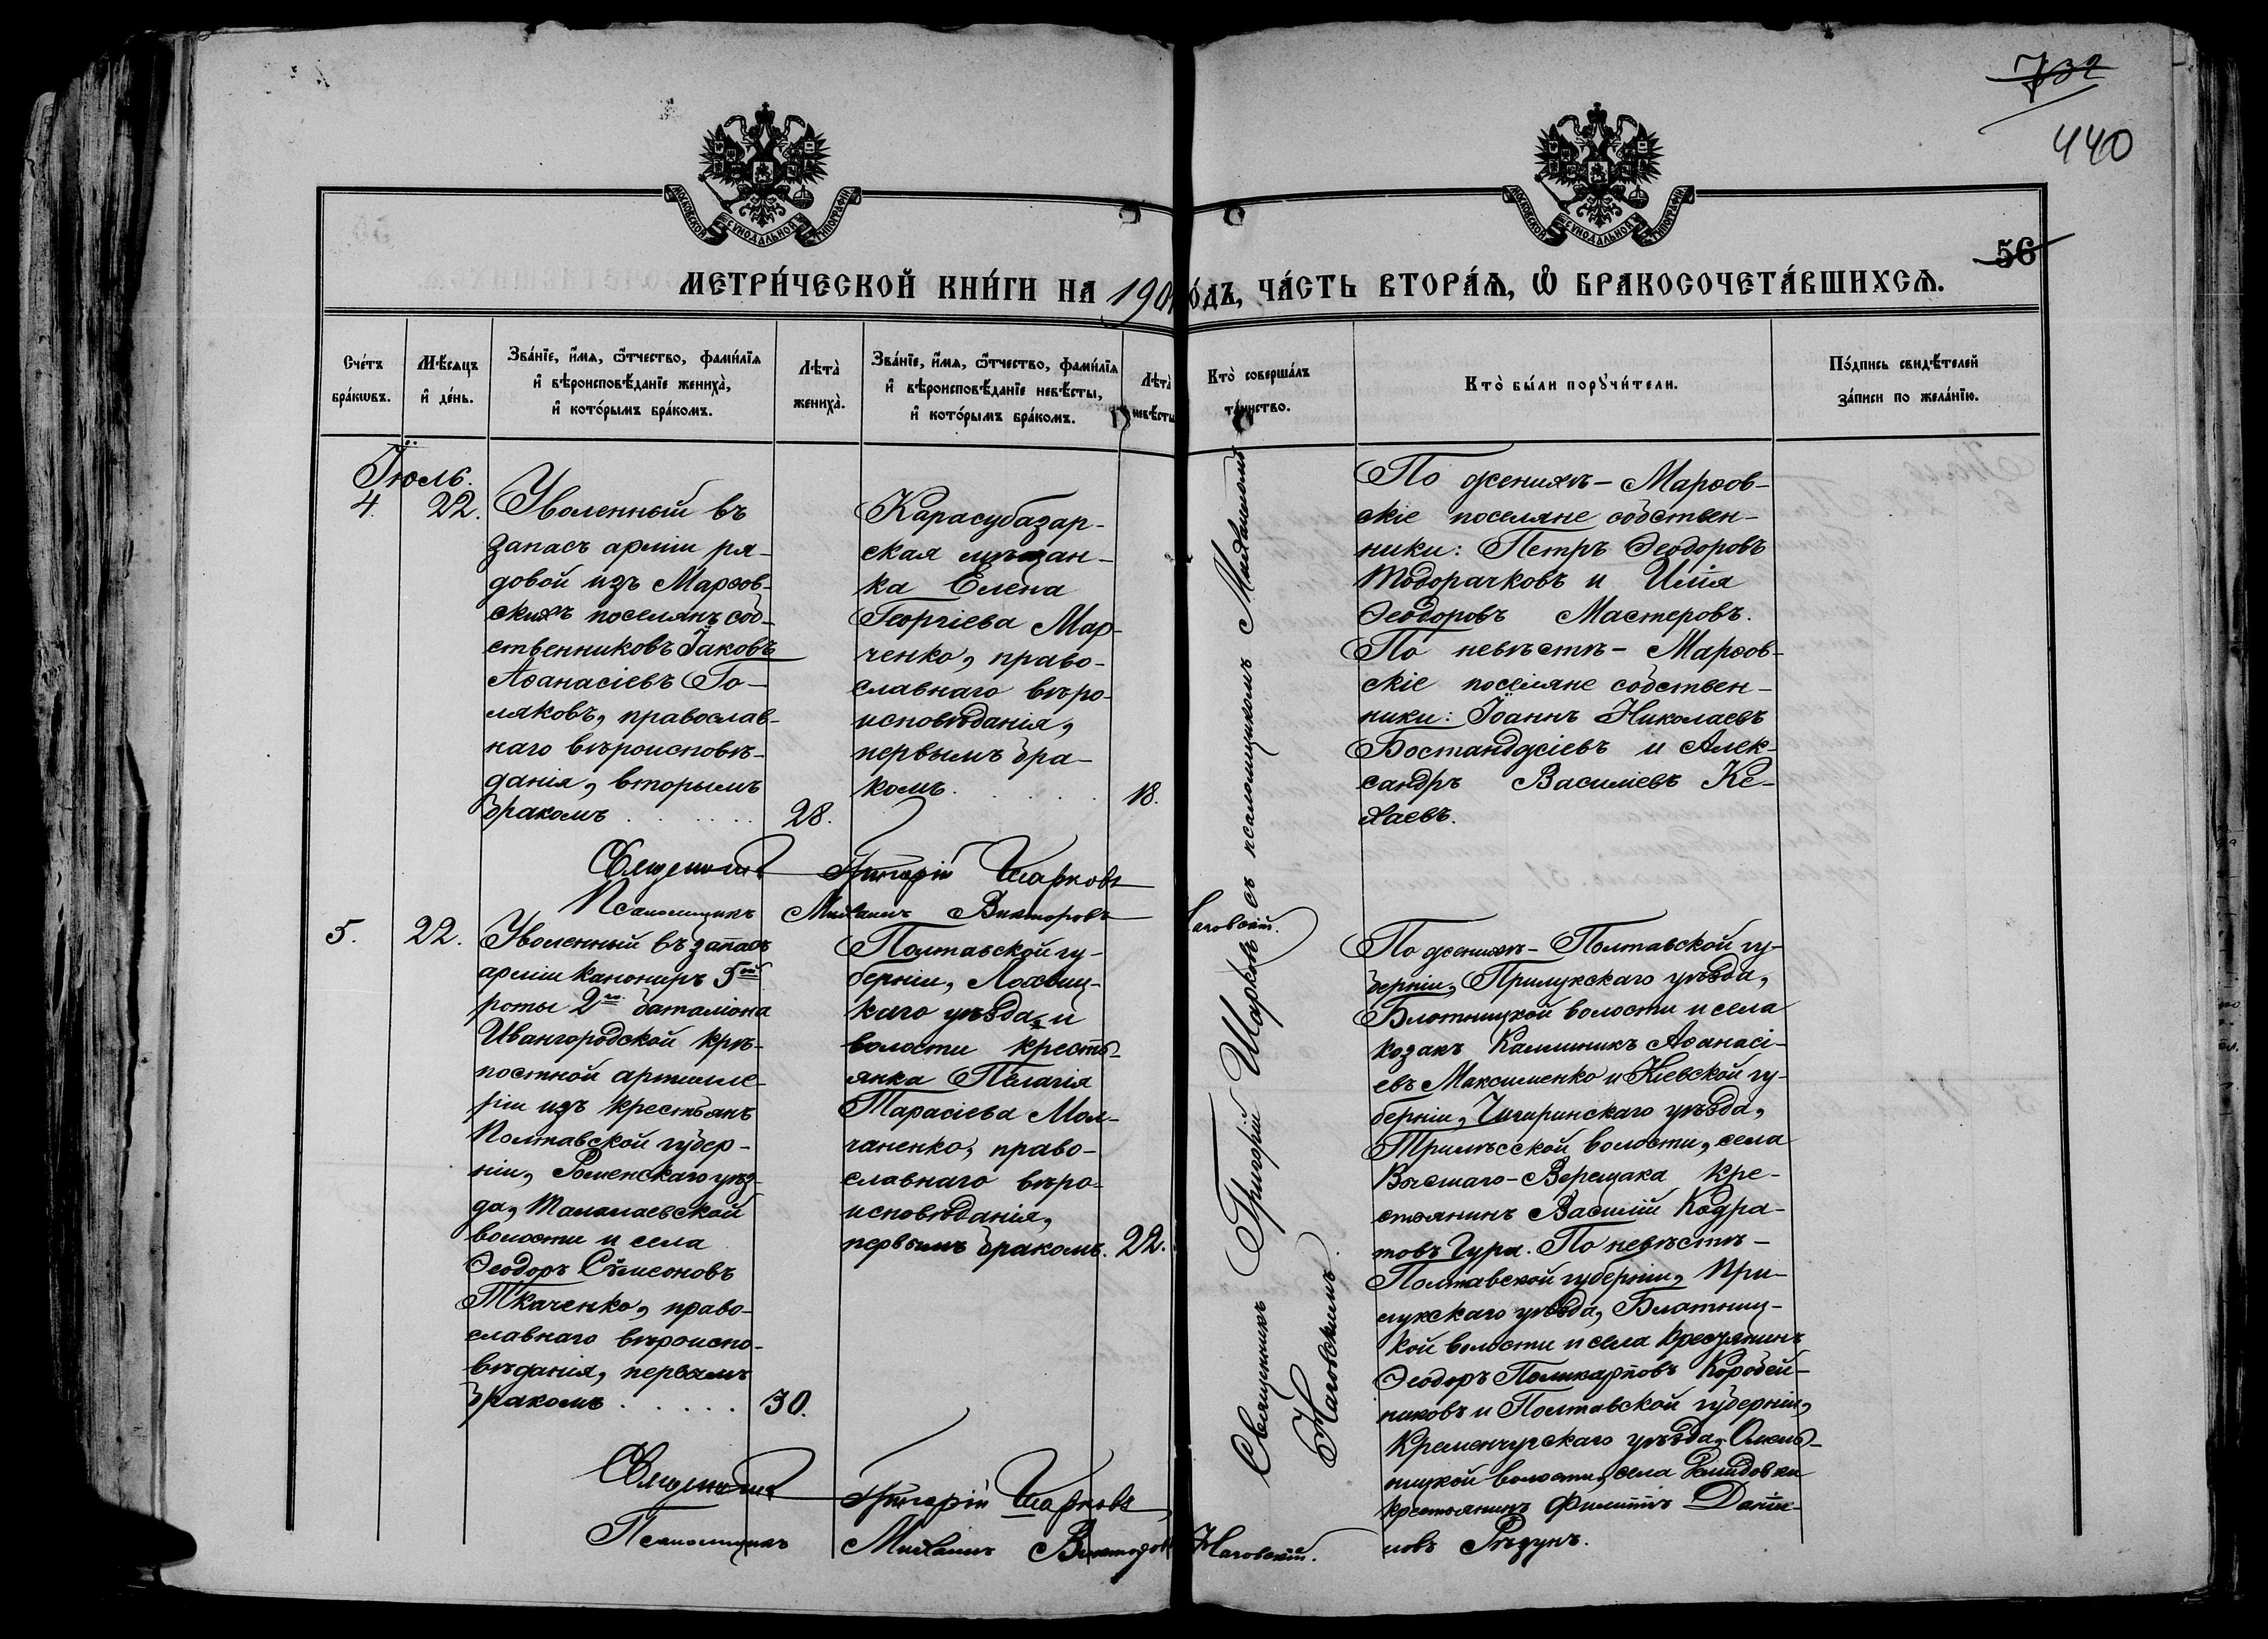 732
440
МОСКОВСКОЙ СѴНОДАЛЬНОЙ ТИПОГРАФІИ
МОСКОВСКОЙ СѴНОДАЛЬНОЙ ТИПОГРАФІИ
56
МЕТРИ́ЧЕСКОЙ КНИ́ГИ НА 190
О́ДЪ, ЧА́СТЬ ВТОРА́Ѧ, Ѡ҆ БРАКОСОЧЕТА́ВШИХСѦ.
Сче́тъ
бра́кѡвъ.
Мѣ́сѧцъ
и҆ де́нь.
Зва́нїе, и҆́мѧ, ѻ҆́тчество, фами́лїѧ
и҆ вѣроисповѣ́данїе жениха̀,
и҆ кото́рымъ бра́комъ.
Лѣта̀
жениха̀.
Зва́нїе, и҆́мѧ, ѻ҆́тчество, фами́лїѧ
и҆ вѣроисповѣ́данїе невѣ́сты,
и҆ кото́рымъ бра́комъ.
Лѣта̀
невѣ́сты
Кто̀ соверша́лъ
та́инство.
Кто̀ бы́ли порꙋчи́тели.
По́дпись свидѣ́телей
за́писи по жела́нїю.
Іюль.
4. 22.
Уволенный въ
запасъ арміи ря-
довой изъ Марѳов-
скихъ поселянъ соб-
ственниковъ Іаковъ
Аѳанасіевъ Го-
ляковъ, православ-
наго вѣроисповѣ-
данія, вторымъ
бракомъ . . . . .
28.
Карасубазар-
ская мѣщан-
ка Елена
Георгіева Мар-
ченко, право-
славнаго вѣро-
исповѣданія,
первымъ бра-
комъ . . . .
18.
Священникъ Григорій Шарковъ съ псаломщикомъ Михаиломъ
Наговскимъ.
По женихѣ – Марѳов-
скіе поселяне собствен-
ники: Петръ Ѳеодоровъ
Тодорачковъ и Илія
Ѳеодоровъ Мастеровъ.
По невѣстѣ – Марѳов-
скіе поселяне собствен-
ники: Іоаннъ Николаевъ
Бостанджіевъ и Алек-
сандръ Василіевъ Ке-
хаевъ.
Священникъ Григорій Шарковъ
Псаломщикъ Михаилъ Викторовъ
Наговскій.
5. 22.
Уволенный въ запасъ
арміи канониръ 5ой
роты 2го баталіона
Ивангородской крѣ-
постной артилле-
ріи изъ крестьянъ
Полтавской губер-
ніи, Роменскаго уѣз-
да, Талалаевской
волости и села
Ѳеодоръ Сѵмеоновъ
Ткаченко, право-
славнаго вѣроиспо-
вѣданія, первымъ
бракомъ . . . . .
30.
Полтавской гу-
берніи, Лохвиц-
каго уѣзда и
волости кресть-
янка Пелагія
Тарасіева Мол-
чаненко, право-
славнаго вѣро-
исповѣданія,
первымъ бракомъ.
22.
По женихѣ – Полтавской гу-
берніи, Прилукскаго уѣзда,
Блотницкой волости и села
козакъ Каллиникъ Аѳанасі-
евъ Максименко и Кіевской гу-
берніи, Чигиринскаго уѣзда,
Трилѣсской волости, села
Высшаго-Верещака кре-
стьянинъ Василій Кодра-
товъ Гура. По невѣстѣ –
Полтавской губерніи, При-
лукскаго уѣзда, Блотниц-
кой волости и села крестьянинъ
Ѳеодоръ Поликарповъ Коробей-
никовъ и Полтавской губерніи,
Кременчугскаго уѣзда, Омель-
ницкой волости, села
крестьянинъ Филиппъ Даніи-
ловъ Рѣзунъ.
Священникъ Григорій Шарковъ
Псаломщикъ Михаилъ Викторовъ
Наговскій.